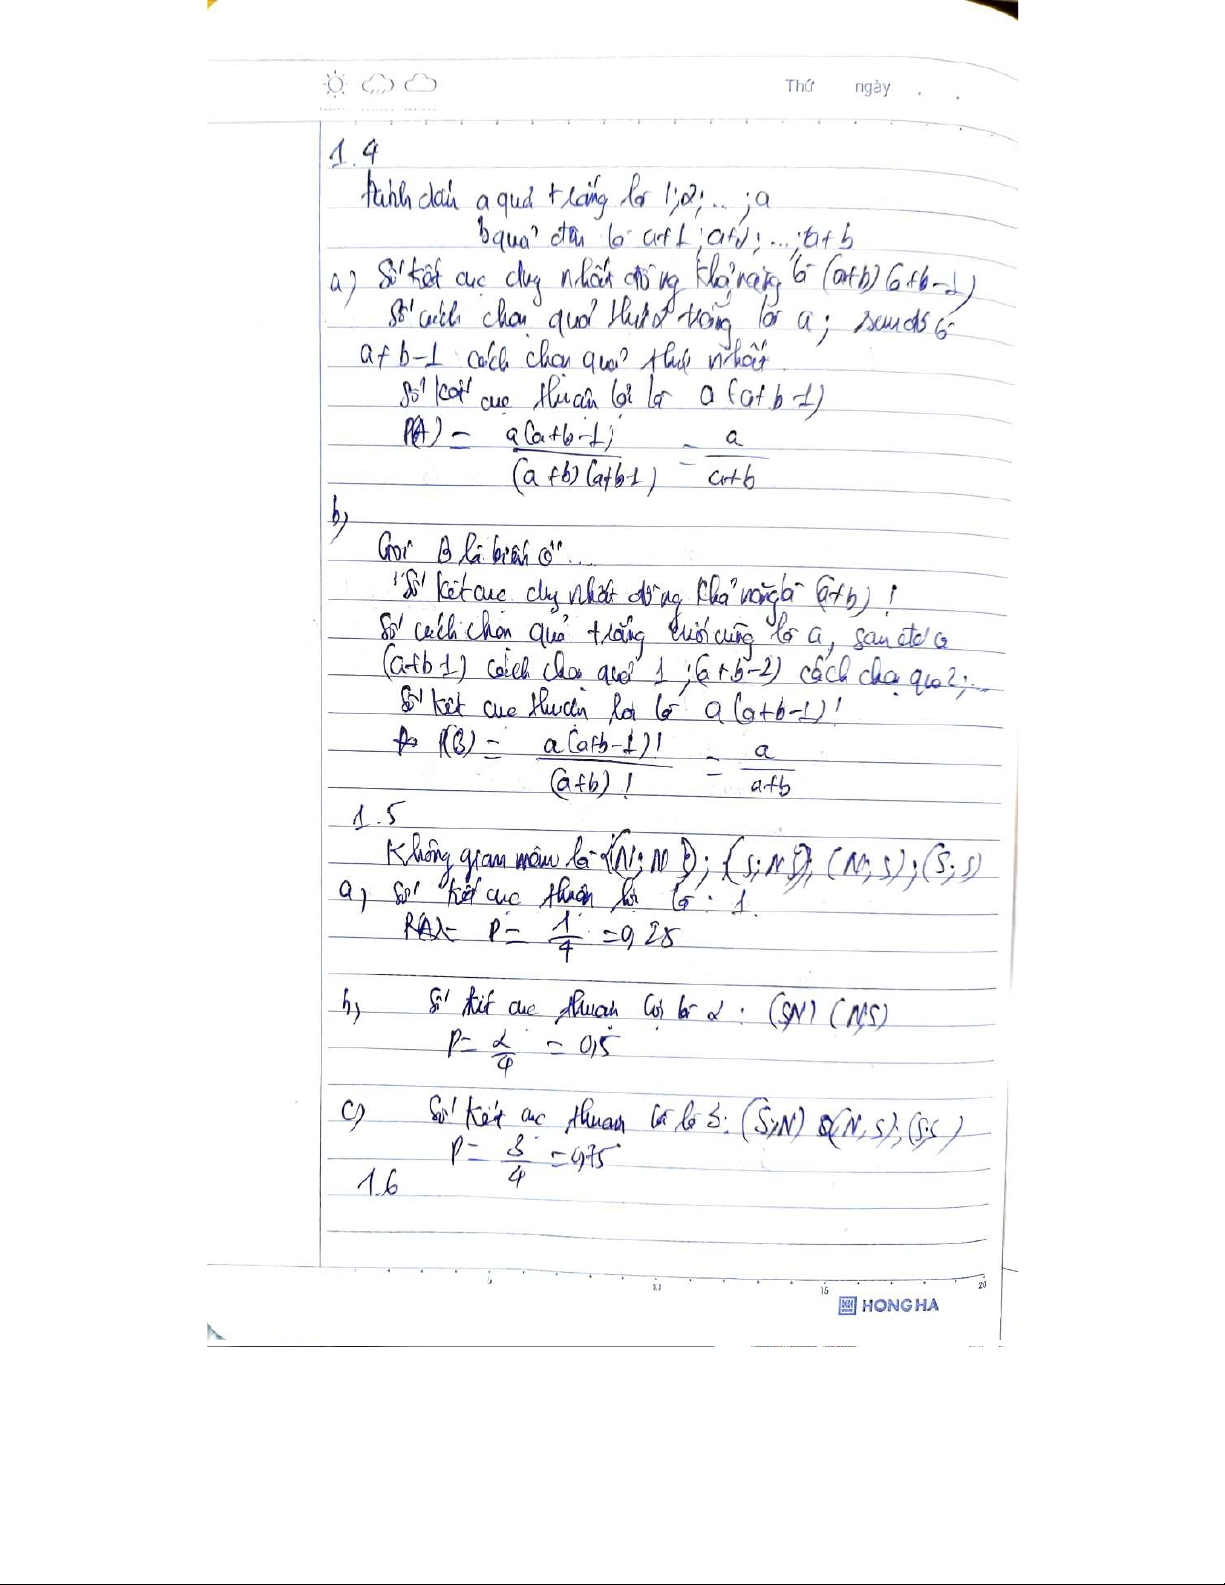 Thứ ngày . .
1.4
Đánh dấu a quả trắng là 1;2;...;a
b quả đen là a+1;a+2;...;a+b
a) Số kết cục duy nhất đồng khả năng là (a+b)(a+b-1)
Số cách chọn quả thứ 2 trắng là a; sau đó có
a+b-1 cách chọn quả thứ nhất.
Số kết cục thuận lợi là a(a+b-1)
P(A) = a(a+b-1) / (a+b)(a+b-1) = a / a+b
b)
Gọi B là biến cố "...
Số kết cục duy nhất đồng khả năng là (a+b)!
Số cách chọn quả trắng cuối cùng là a, sau đó có
(a+b-1) cách chọn quả 1; (a+b-2) cách chọn quả 2;...
Số kết cục thuận lợi là a(a+b-1)!
P(B) = a(a+b-1)! / (a+b)! = a / a+b
1.5
Không gian mẫu là (N;N); (S;N); (N;S); (S;S)
a) Số kết cục thuận lợi là: 1.
P(A)= P= 1/4 = 0,25
b) Số kết cục thuận lợi là 2: (S,N) (N,S)
P= 2/4 = 0,5
c) Số kết cục thuận lợi là 3: (S;N) (N,S); (S;S)
P= 3/4 = 0,75
1.6
5 10 15 20
HONG HA